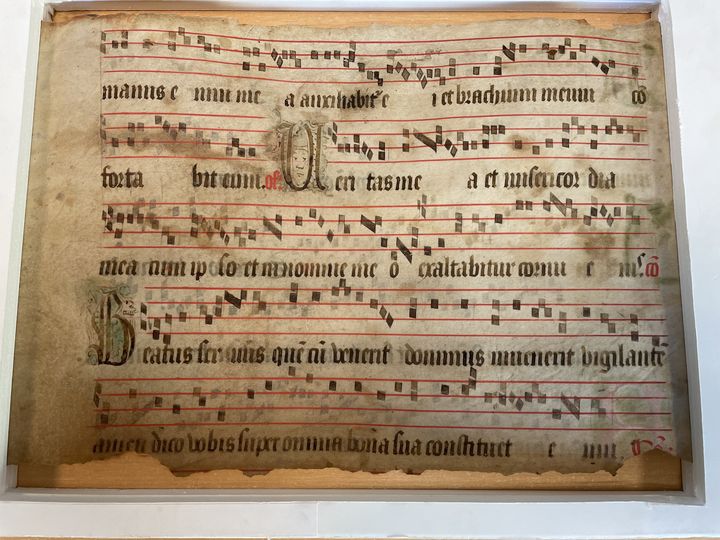 manus e nim me a auxiliabit e i et brachium meum cō
forta bit eum. of. Veri tas me a et misericor dia
mea cum ipso et in nomine me o exaltabitur cornu e ius. cō
Beatus servus quē cū venerit dominus invenerit vigilantē
amen dico vobis super omnia bona sua constituet e um.